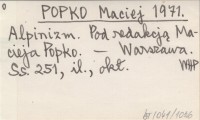 POPKO Maciej 1971.
Alpinizm. Pod redakcją Ma-
cieja Popko. — Warszawa.
Ss. 251, il., okł.